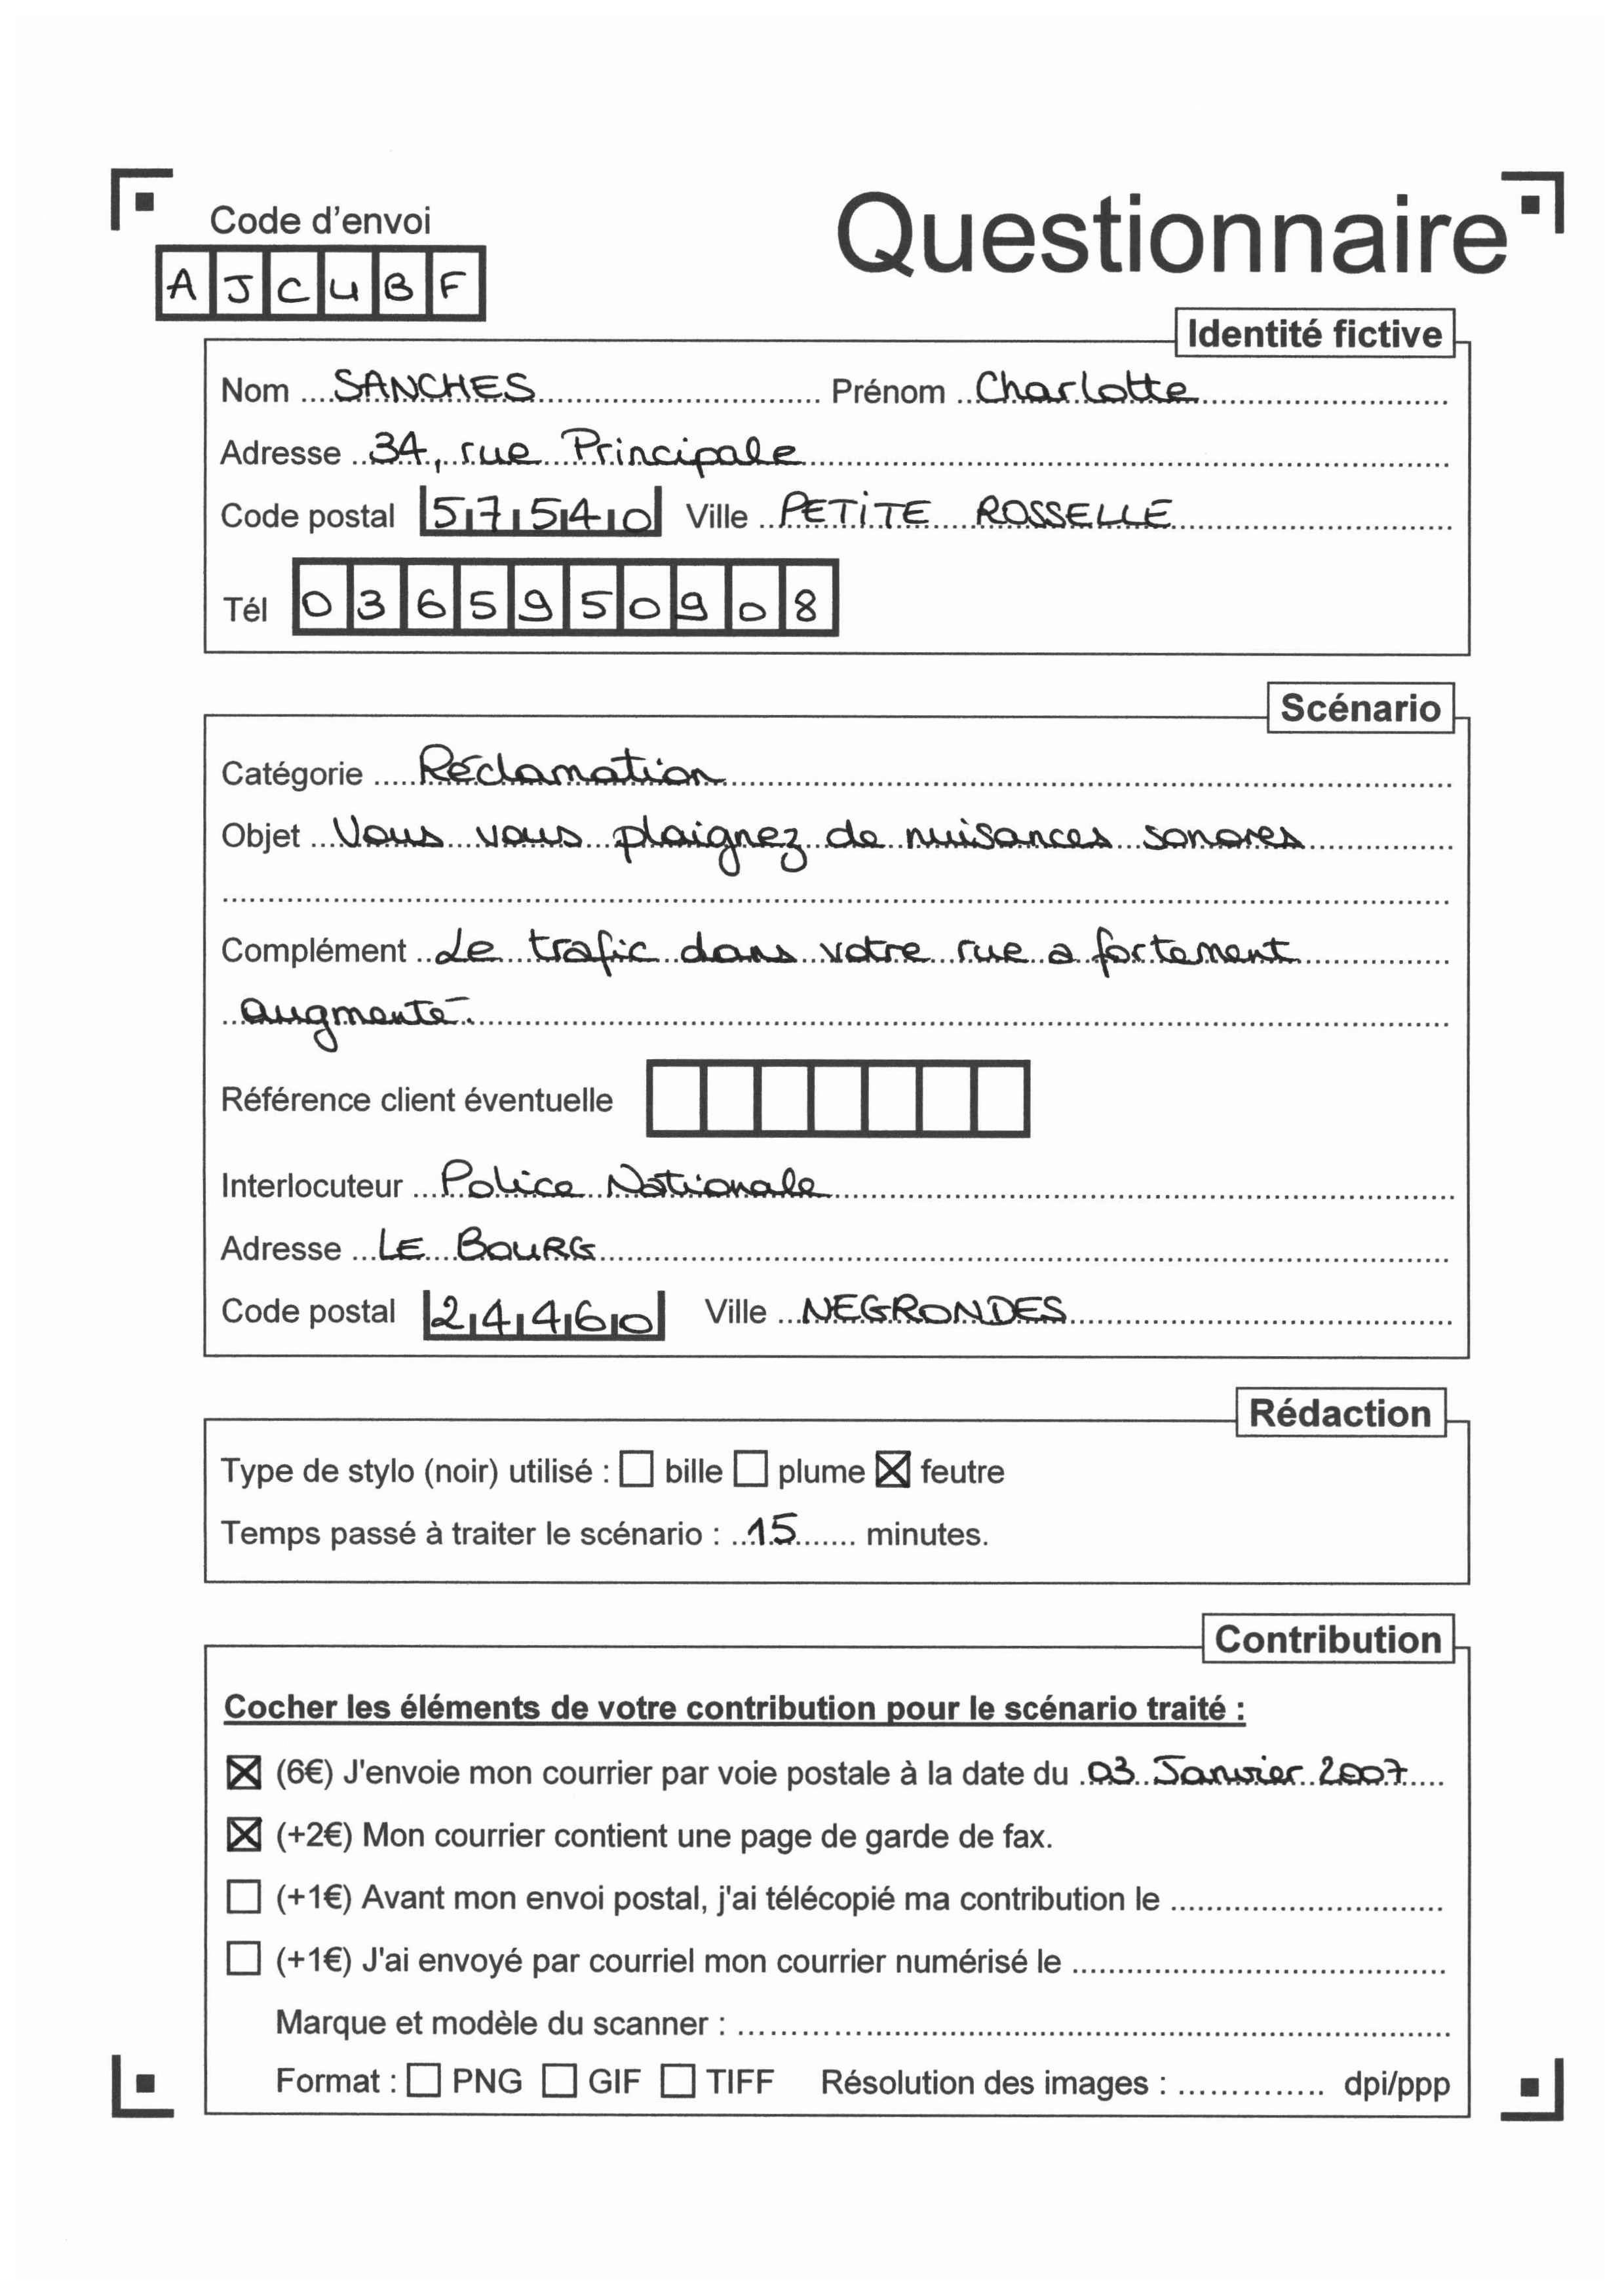 Questionnaire
Code d'envoi
AJCUBF
Identité fictive
Nom SANCHES Prénom Charlotte
Adresse 34, rue Principale
Code postal 57540 Ville PETITE ROSSELLE
Tél 0365950908
Scénario
Catégorie Réclamation
Objet Vous vous plaignez de nuisances sonores
Complément Le trafic dans votre rue a fortement
augmenté.
Référence client éventuelle
Interlocuteur Police Nationale
Adresse LE BOURG
Code postal 24460 Ville NEGRONDES
Rédaction
Type de stylo (noir) utilisé : ☐ bille ☐ plume ☒ feutre
Temps passé à traiter le scénario : 15 minutes.
Contribution
Cocher les éléments de votre contribution pour le scénario traité :
☒ (6€) J'envoie mon courrier par voie postale à la date du 03 Janvier 2007
☒ (+2€) Mon courrier contient une page de garde de fax.
☐ (+1€) Avant mon envoi postal, j'ai télécopié ma contribution le
☐ (+1€) J'ai envoyé par courriel mon courrier numérisé le
Marque et modèle du scanner :
Format : ☐ PNG ☐ GIF ☐ TIFF Résolution des images : dpi/ppp